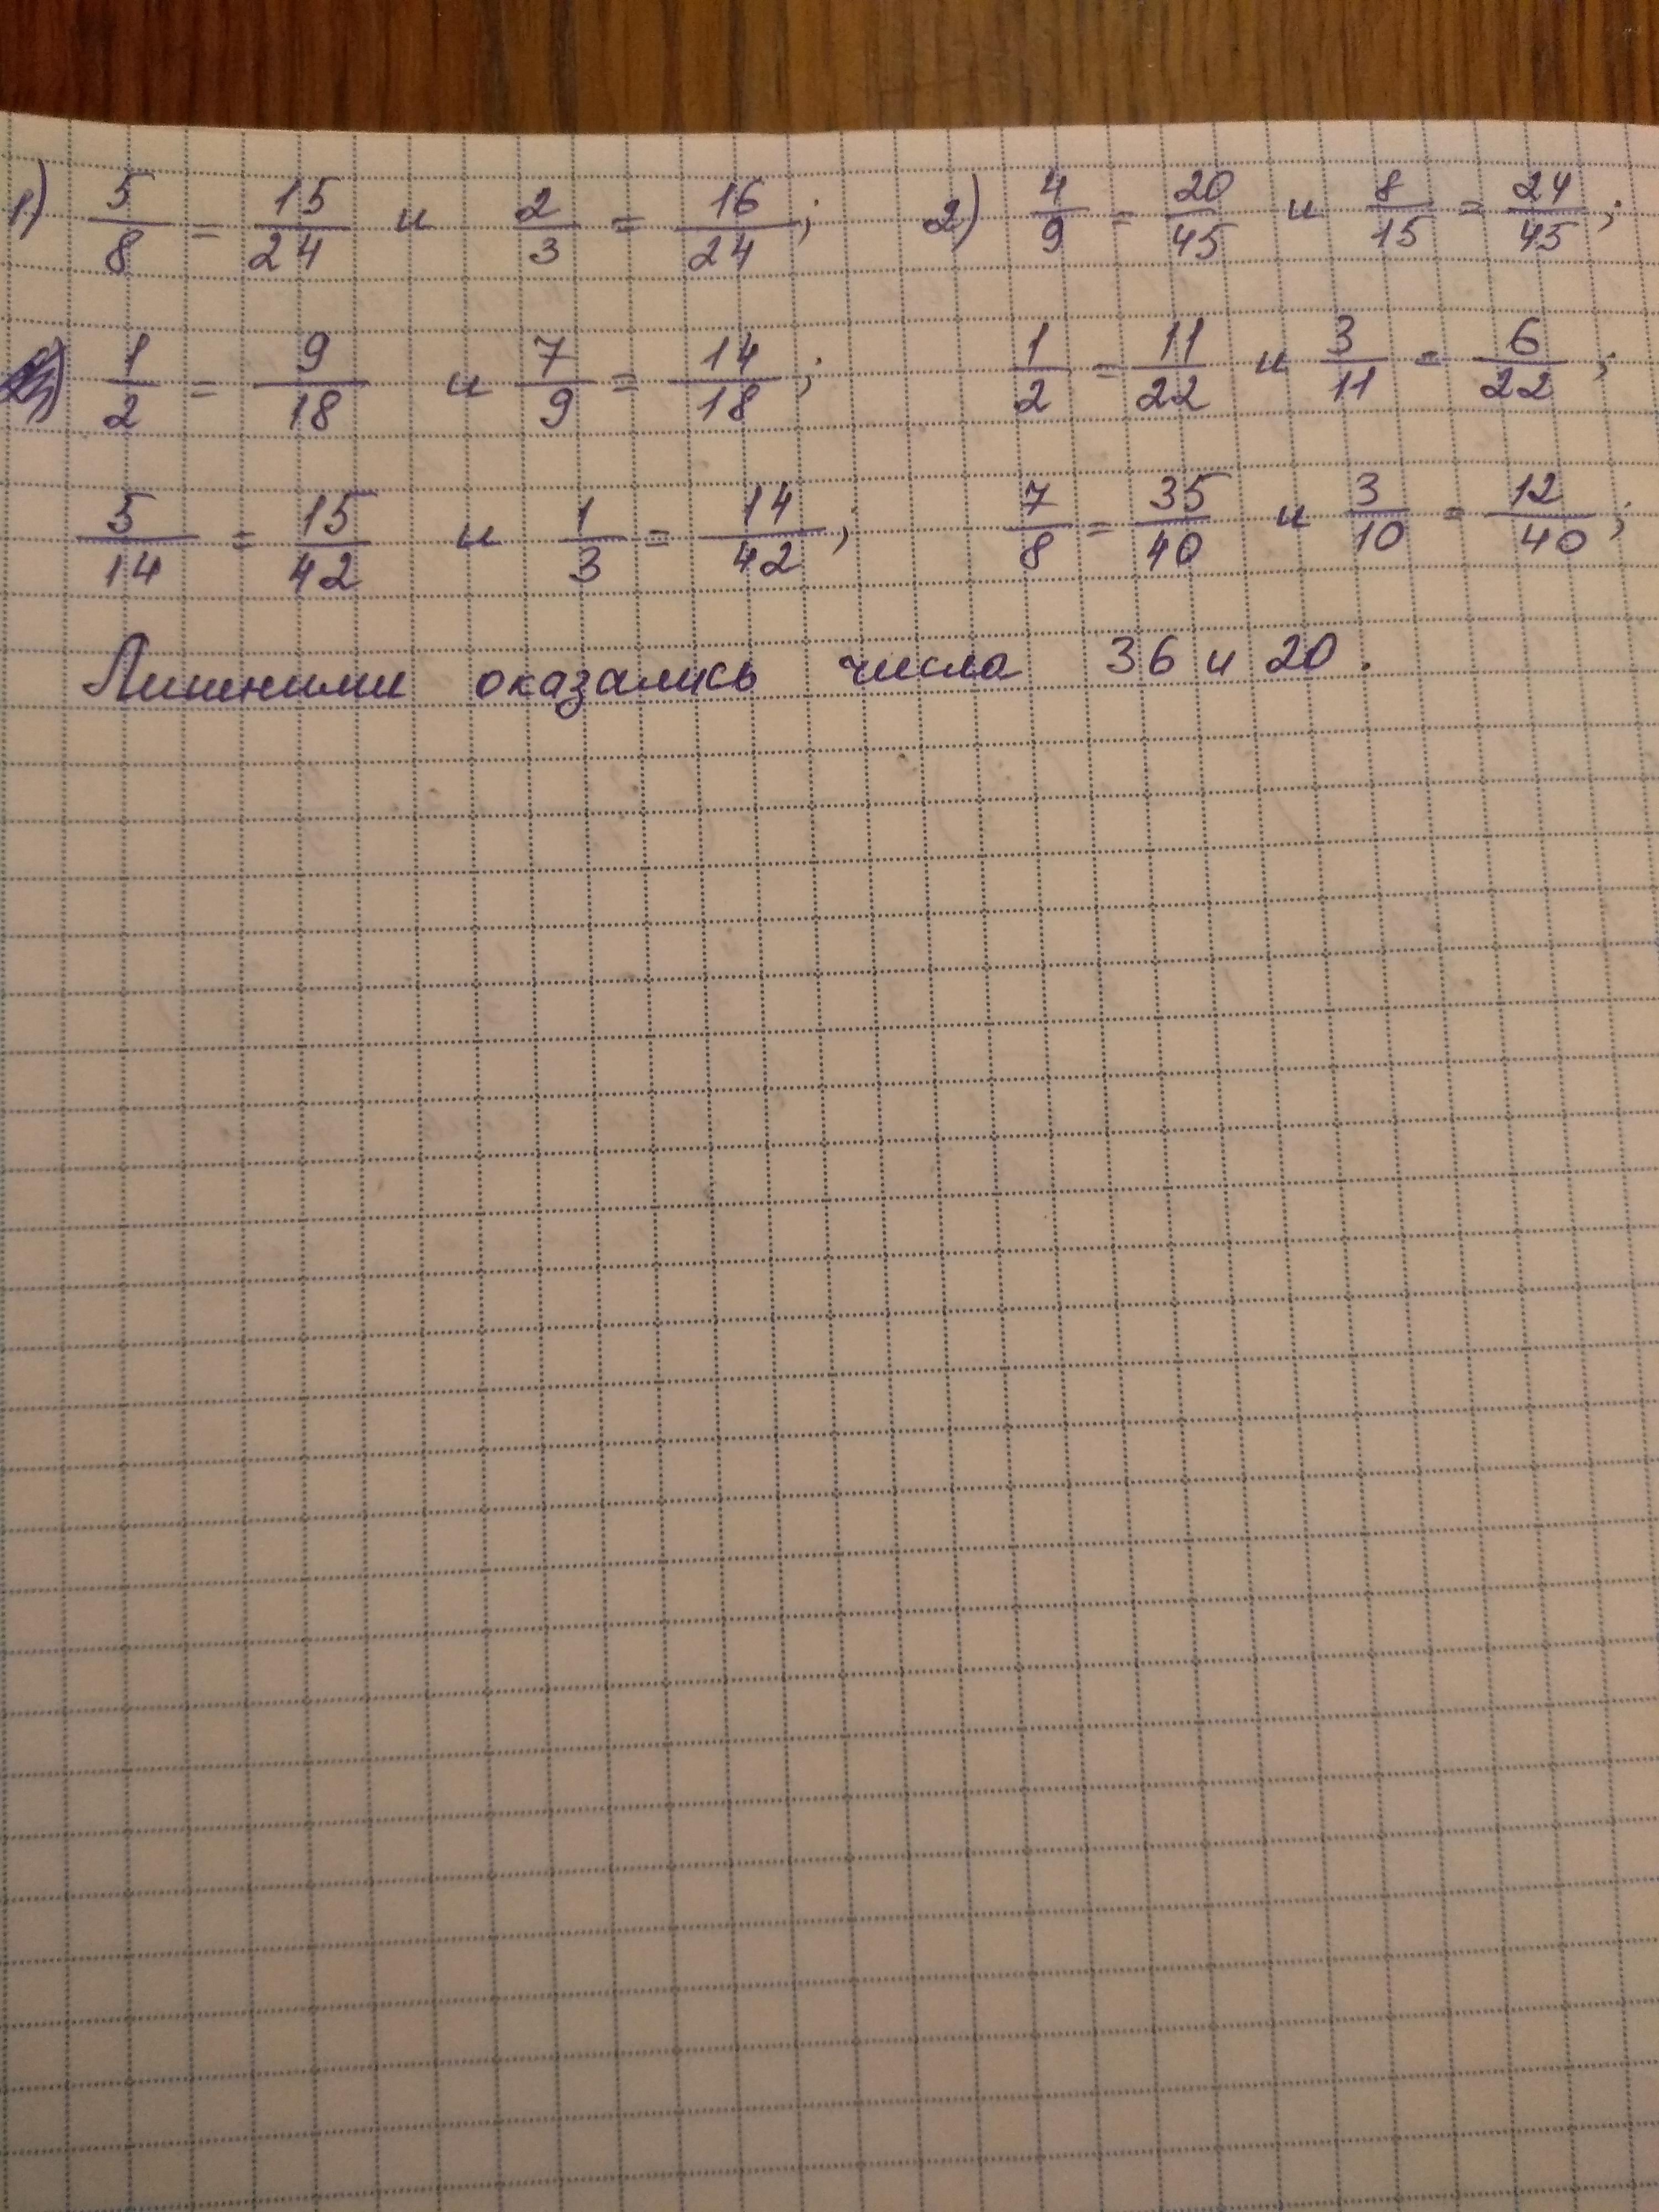 1) 5/8 = 15/24 и 2/3 = 16/24; 2) 4/9 = 20/45 и 8/15 = 24/45;
1/2 = 9/18 и 7/9 = 14/18; 1/2 = 11/22 и 3/11 = 6/22;
5/14 = 15/42 и 1/3 = 14/42; 7/8 = 35/40 и 3/10 = 12/40;
Лишними оказались числа 36 и 20.